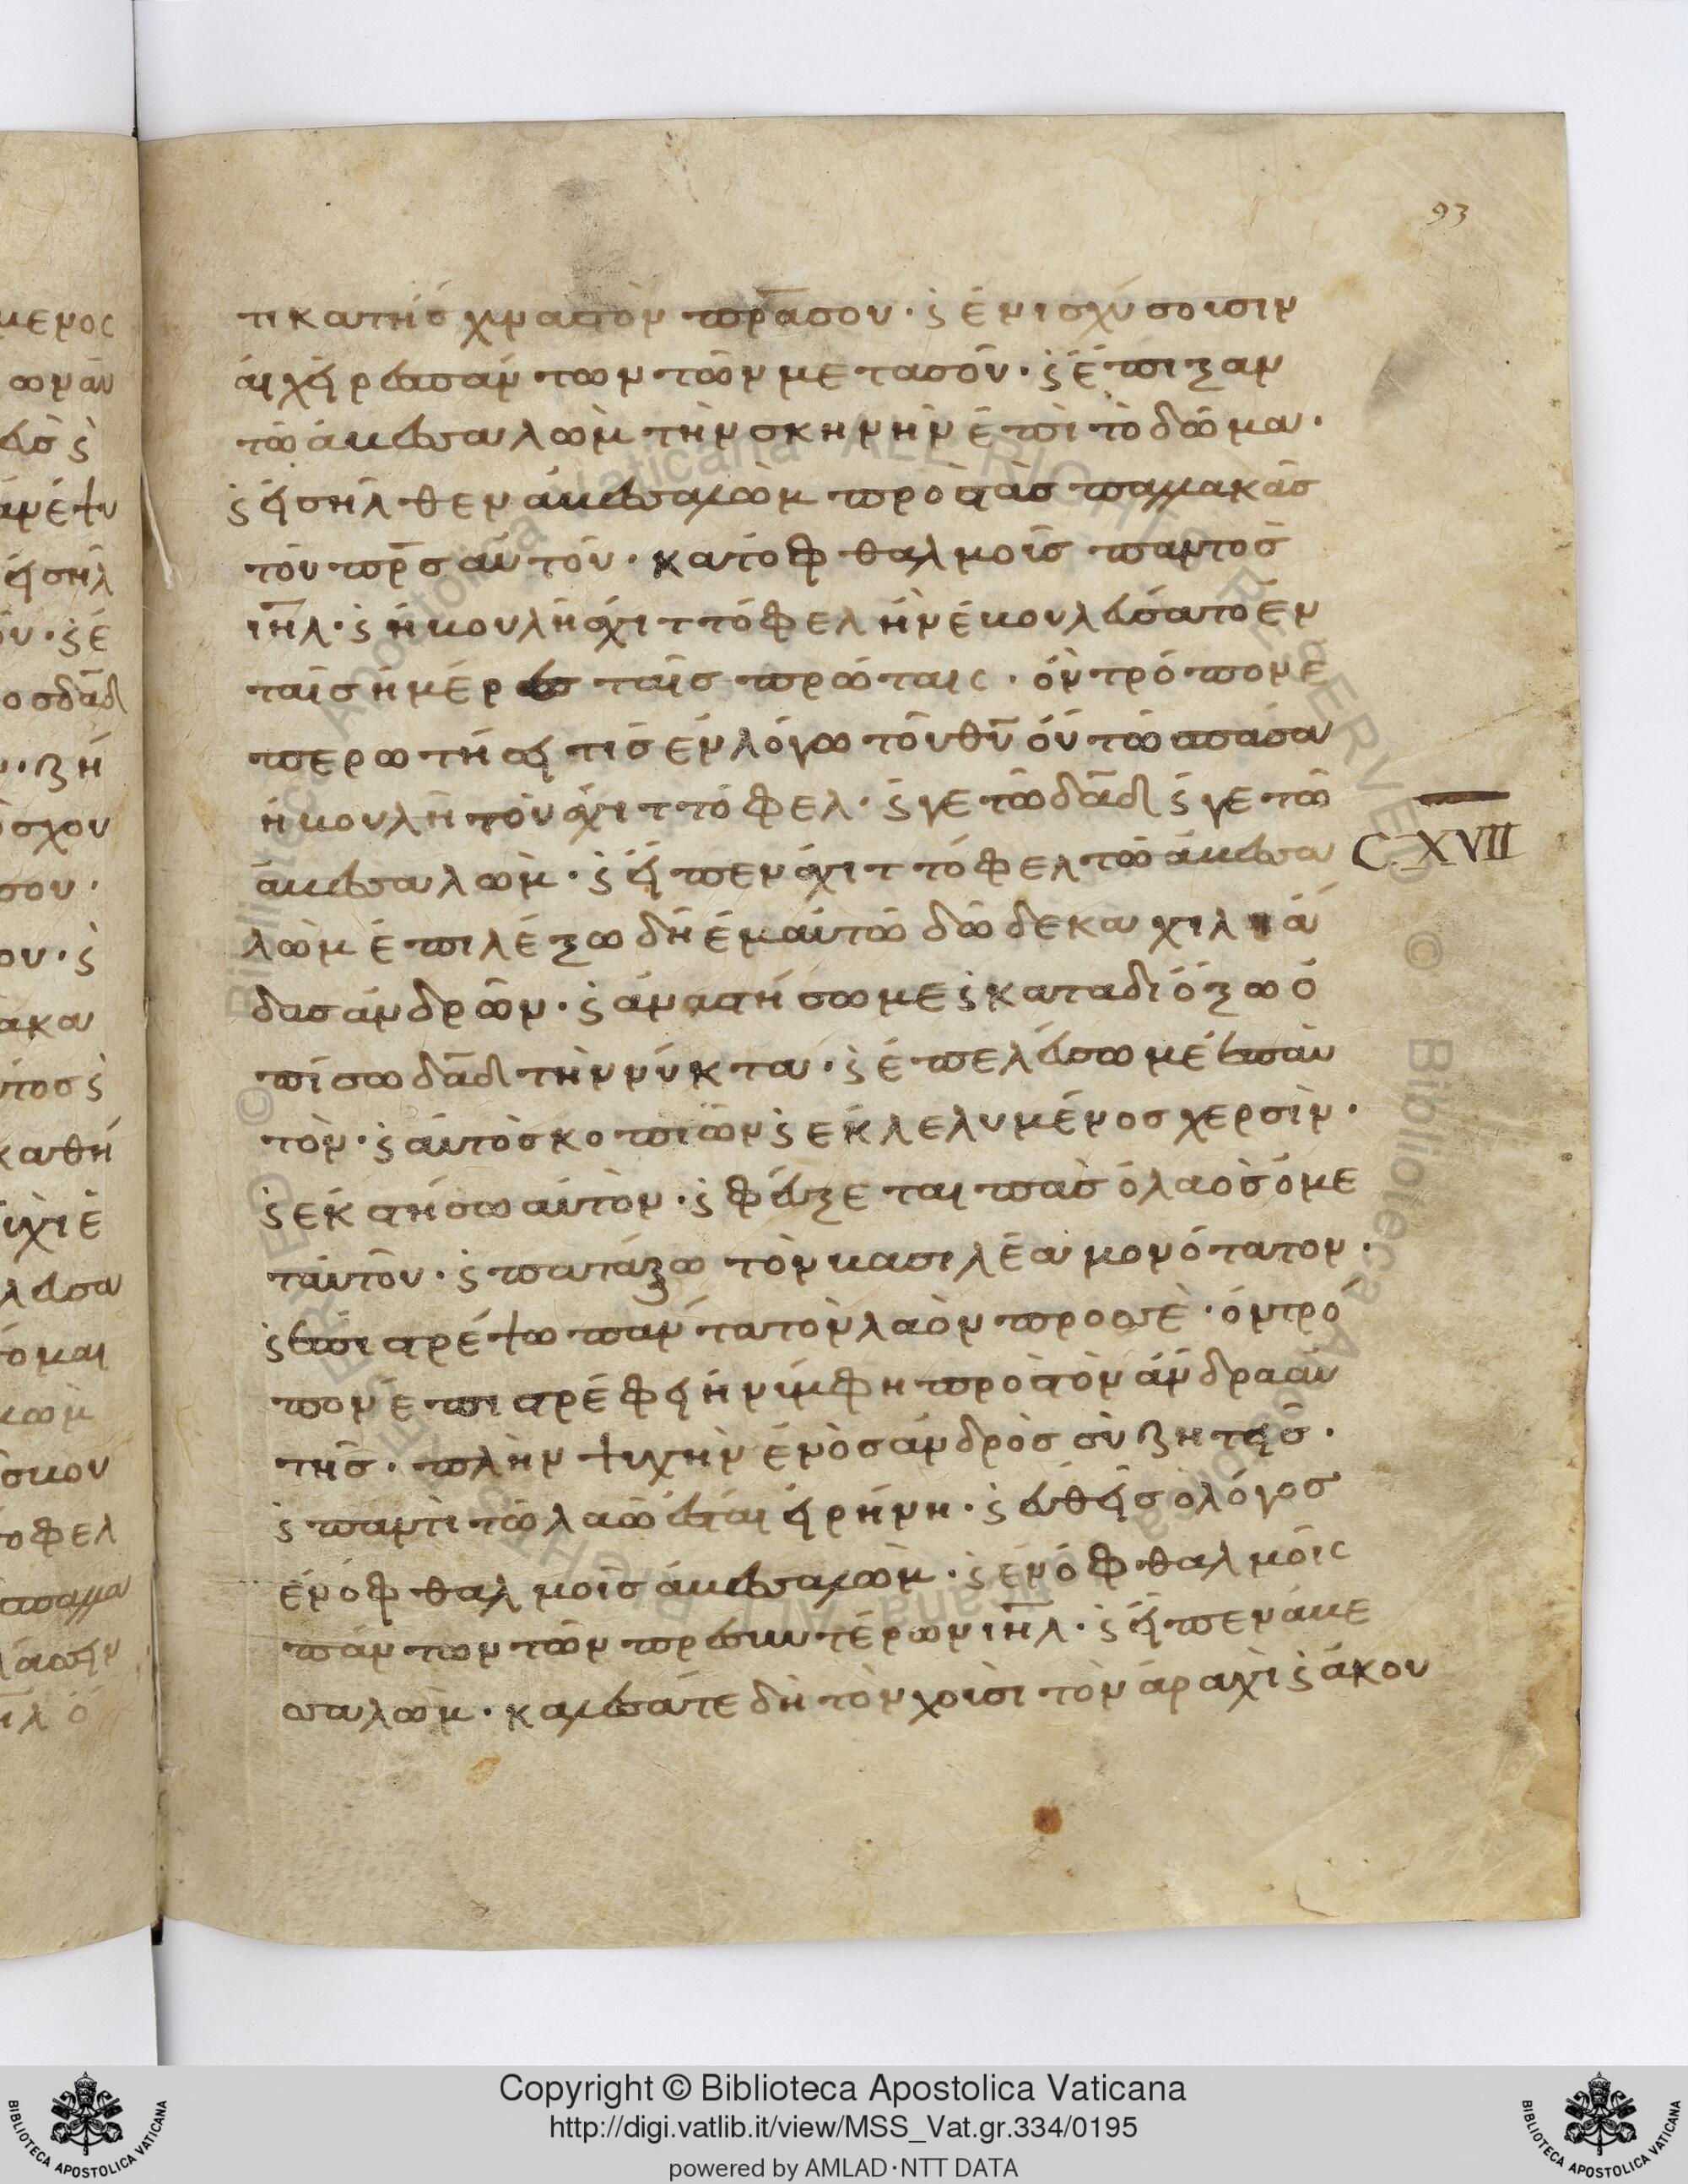 93
τι κατήσχυνας τὸν πρ̅α σου · ϛ ἐνισχύσουσιν
αἱ χεῖρες πάντων τῶν μετα σοῦ · ϛ ἔπιξαν
τῶ ἀβεσαλὼμ τὴν σκηνὴν ἐπὶ τὸ δῶμα ·
ϛ εἰσῆλθεν ἀβεσαλὼμ πρὸς τὰς παλλακὰς
τοῦ πρ̅σ αὐτοῦ · κατ ὀφθαλμοῖς παντὸς
ιη̅λ · ϛ ἡ βουλὴ ἀχιττόφελ ἣν ἐβουλεύσατο ἐν
ταῖς ἡμέραις ταῖς πρώταις · ὃν τρόπον ἐ
περωτήσει τις ἐν λόγω τοῦ θυ̅ οὕτω πᾶσα
ἡ βουλὴ τοῦ ἀχιττόφελ · ϛ γε τῶ δα̅δ ϛ γε τῶ
ἀβεσαλὼμ · ϛ εἶπεν ἀχιττόφελ τῶ ἀβεσα
C. XVII
λὼμ ἐπιλέξω δὴ ἐμαυτῶ δώδεκα χιλιά
δας ἀνδρῶν · ϛ ἀναστήσωμε ϛ καταδιόξω ὀ
πίσω δα̅δ τὴν νύκτα · ϛ ἐπελεύσωμε ἐπ αὐ
τὸν · ϛ αὐτὸς κοπιῶν ϛ ἐκλελυμένος χερσὶν ·
ϛ ἐκστήσω αὐτὸν · ϛ φεύξεται πᾶς ὁ λαὸς ὁ με
τ αὐτοῦ · ϛ πατάξω τὸν βασιλέα μονότατον ·
ϛ ἐπιστρέψω πάντα τὸν λαὸν προς σὲ · ὃν τρό
πον ἐπιστρέφει ἡ νύμφη πρὸς τὸν ἄνδρα αὐ
τῆς · πλὴν ψυχὴν ἑνὸς ἀνδρὸς σὺ ζητεῖς ·
ϛ παντὶ τῶ λαῶ ἔσται εἰρήνη · ϛ εὐθεῖς ὁ λόγος
ἐν ὀφθαλμοῖς ἀβεσαλὼμ · ϛ ἐν ὀφθαλμοῖς
πάντων τῶν πρεσβυτέρων ιη̅λ · ϛ εἶπεν ἀβε
σαλὼμ · καλέσατε δὴ τὸν χουσὶ τὸν ἀραχὶ ϛ ἀκου
Copyright © Biblioteca Apostolica Vaticana
http://digi.vatlib.it/view/MSS_Vat.gr.334/0195
powered by AMLAD·NTT DATA
BIBLIOTECA APOSTOLICA VATICANA
BIBLIOTECA APOSTOLICA VATICANA